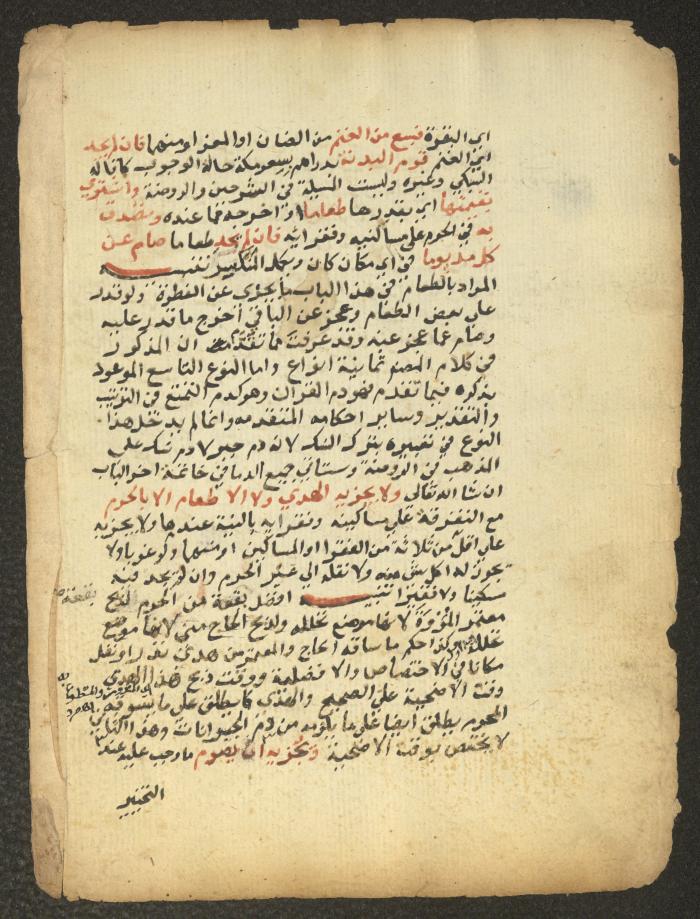 اي البقرة فسبع من الغنم من الضان او المعز او منهما فان لم يجد
اي الغنم قوم البدنة بدراهم بسعر مكة حالة الوجوب كما قاله
السبكي وغيره وليست المسيلة في الشرحين والروضة واشتري
بقيمتها اي بقدرها طعاما او اخرجه مما عنده وتصدق
به في الحرم علي مساكينه وفقرايه فان لم يجد طعاما صام عن
كل مد يوما في اي مكان كان ويكمل المنكسر تنبيه
المراد بالطعام في هذا الباب ما يجزي عن الفطرة ولو قدر
علي بعض الطعام وعجز عن الباقي اخرج ما قدر عليه
وصام عما عجز عنه وقد عرفت مما تقدم ان المذكور
في كلام المصنف ثمانية انواع واما النوع التاسع الموعود
بذكره فيما تقدم فهو دم القران وهو كدم التمتع في الترتيب
والتقدير وساير احكامه المتقدمه وانما لم يدخل هذا
النوع في تعبيره بترك النسك لانه دم جبر لا دم نسك علي
المذهب في الروضة وسياتي جميع الدما في خاتمة اخر الباب
ان شا الله تعالى ولا يجزيه الهدي ولا الاطعام الا بالحرم
مع التفرقة علي مساكينه وفقرايه بالنية عندها ولا يجزيه
علي اقل من ثلاثة من الفقرا او المساكين او منهما ولو غربا ولا
يجوز له اكل شي منه ولا نقله الي غير الحرم وان لم يجد فيه
مسكينا ولا فقيرا تنبيه افضل بقعة من الحرم لذبح
معتمر المروة لانها موضع تحلله ولذبح الحاج مني لانها موضع
تحلله وكذا حكم ما ساقه الحاج والمعتمر من هدي نذر او نفل
مكانا في الاختصاص والافضلية ووقت ذبح هذا الهدي
وقت الاضحية علي الصحيح والهدي كما يطلق علي ما يسوقه
المحرم يطلق ايضا علي ما يلزمه من دم الجبرانات وهذا الثاني
لا يختص بوقت الاضحية ويجزيه ان يصوم ما وجب عليه عند
التخيير